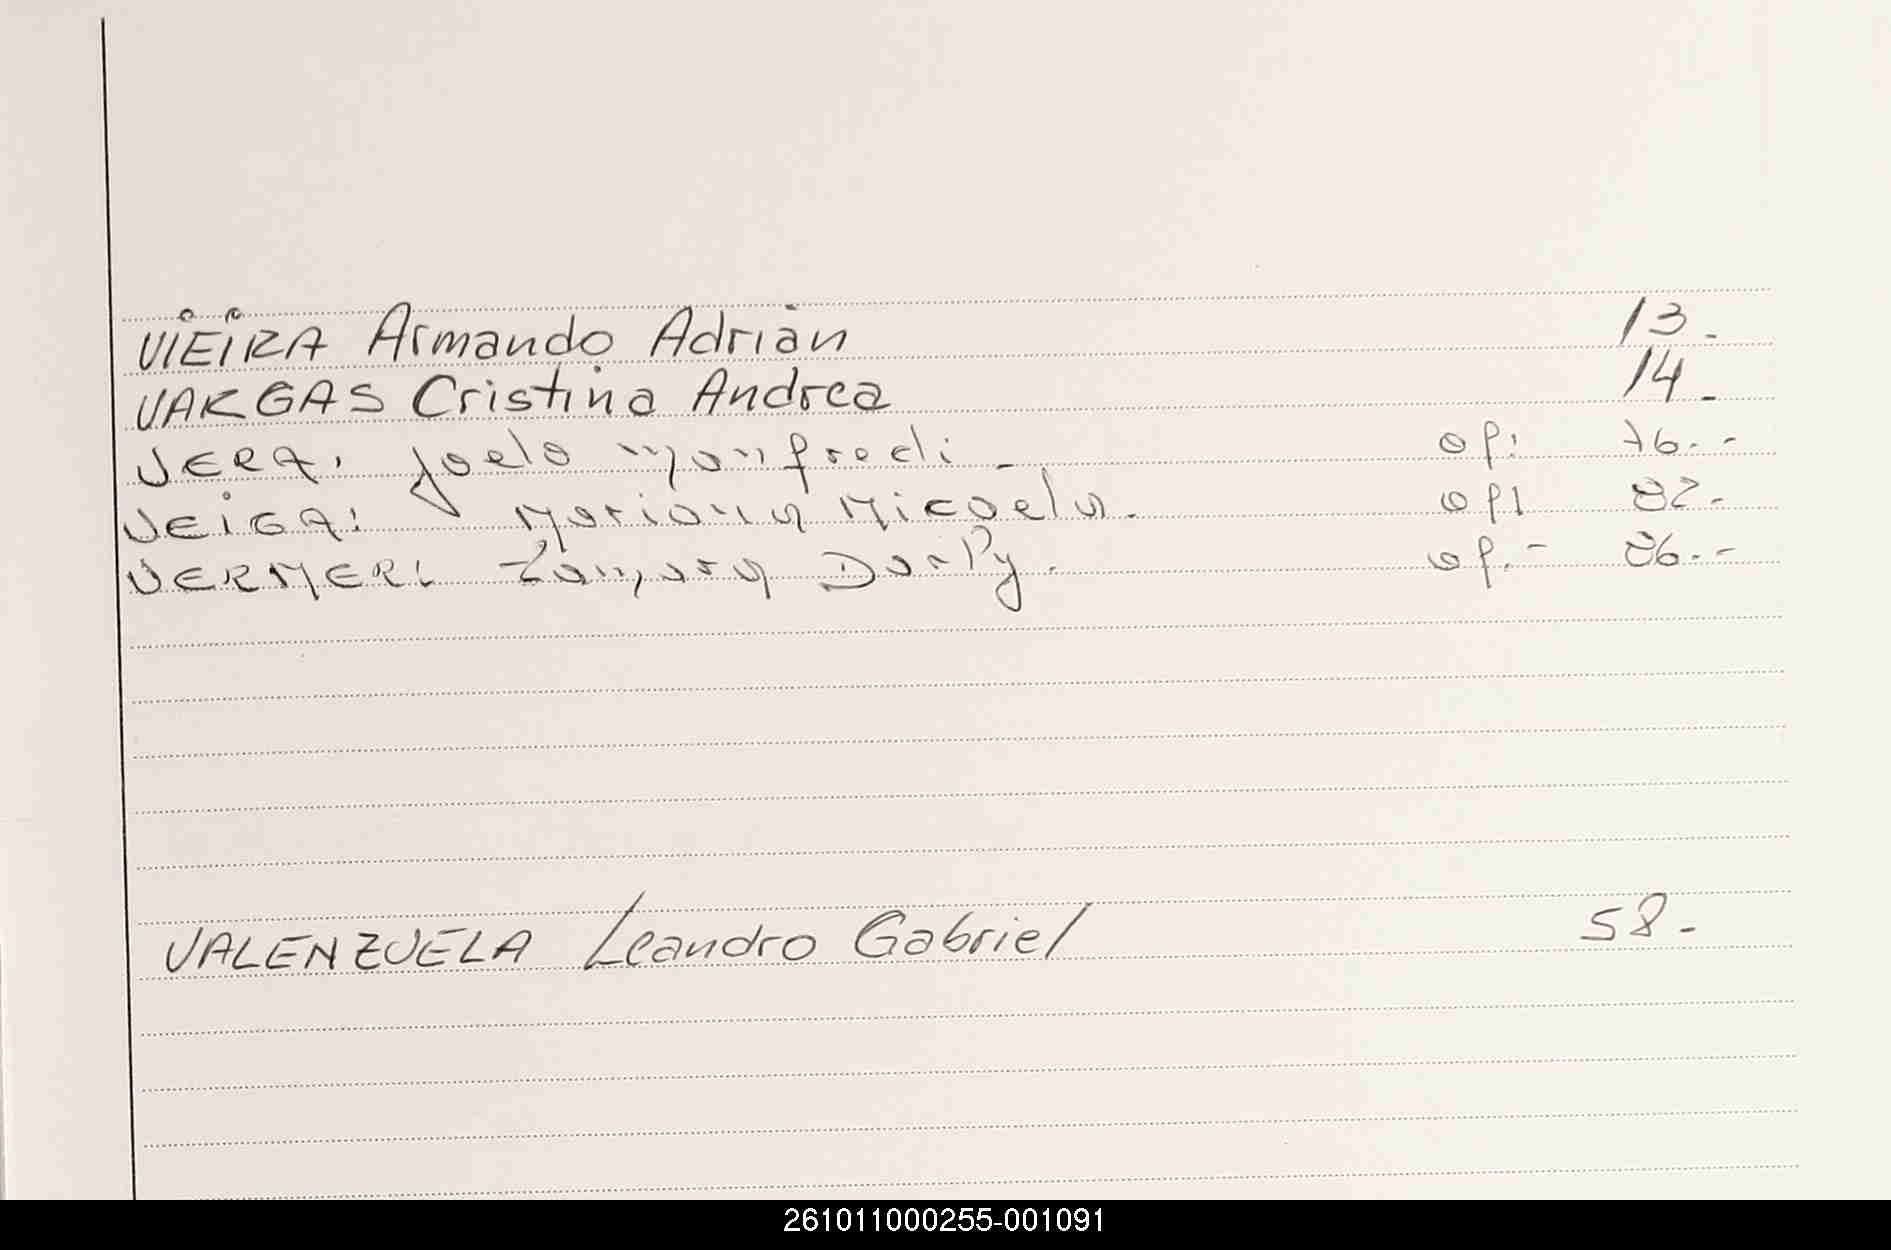 VIEIRA Armando Adrián 13.-
VARGAS Cristina Andrea 14.-
VERA, Joela Manfredi.- of: 76.--
VEIGA: Mariana Micaela. of: 82.-
VERMERI Zamara of.- 86.--
VALENZUELA Leandro Gabriel 58.-
261011000255-001091